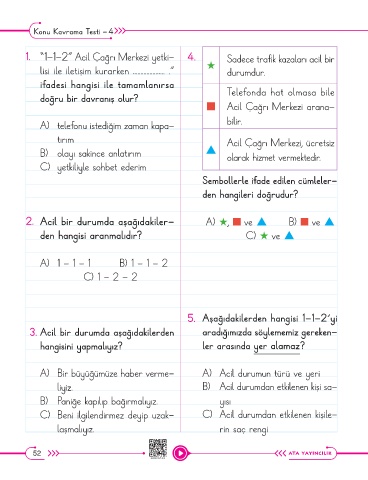 Konu Kavrama Testi - 4
1. "1-1-2" Acil Çağrı Merkezi yetki-
lisi ile iletişim kurarken ............ ."
ifadesi hangisi ile tamamlanırsa
doğru bir davranış olur?
A) telefonu istediğim zaman kapa-
tırım
B) olayı sakince anlatırım
C) yetkiliyle sohbet ederim
2. Acil bir durumda aşağıdakiler-
den hangisi aranmalıdır?
A) 1 - 1 - 1 B) 1 - 1 - 2
C) 1 - 2 - 2
3. Acil bir durumda aşağıdakilerden
hangisini yapmalıyız?
A) Bir büyüğümüze haber verme-
liyiz.
B) Paniğe kapılıp bağırmalıyız.
C) Beni ilgilendirmez deyip uzak-
laşmalıyız.
4. ★ Sadece trafik kazaları acil bir
durumdur.
■ Telefonda hat olmasa bile
Acil Çağrı Merkezi arana-
bilir.
▲ Acil Çağrı Merkezi, ücretsiz
olarak hizmet vermektedir.
Sembollerle ifade edilen cümleler-
den hangileri doğrudur?
A) ★, ■ ve ▲ B) ■ ve ▲
C) ★ ve ▲
5. Aşağıdakilerden hangisi 1-1-2'yi
aradığımızda söylememiz gereken-
ler arasında yer alamaz?
A) Acil durumun türü ve yeri
B) Acil durumdan etkilenen kişi sa-
yısı
C) Acil durumdan etkilenen kişile-
rin saç rengi
52
ATA YAYINCILIK